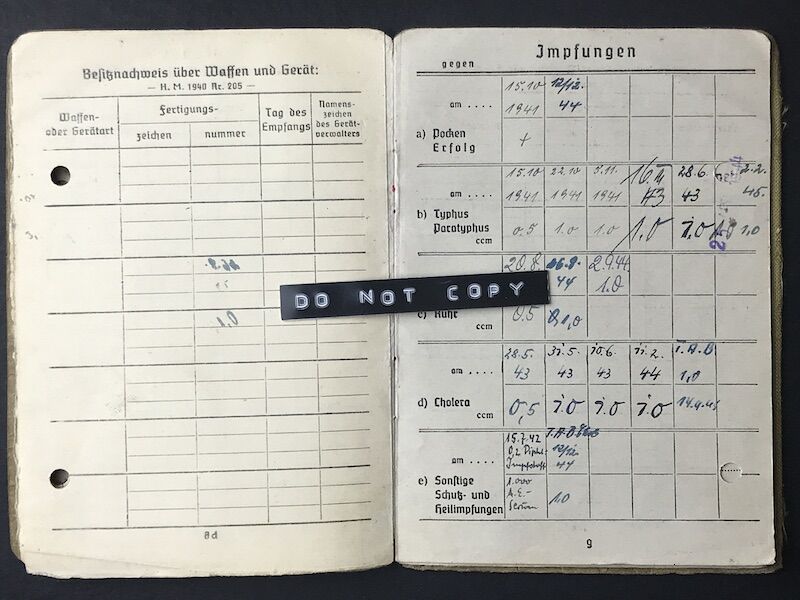 Besitznachweis über Waffen und Gerät:
— H. M. 1940 Nr. 205 —
Waffen- oder Gerätart
Fertigungs-
zeichen
nummer
Tag des Empfangs
Namens-zeichen des Gerät-verwalters
8d
Impfungen
gegen
am ....
15.10 12/12.
1941 44
a) Pocken
Erfolg
+
am ....
15.10 22.10 5.11. 28.6. 2.2.
1941 1941 1941 43 43 45.
b) Typhus
Paratyphus
ccm
0.5 1.0 1.0 1.0 1.0 1,0
20.8. 26.8. 2.9.44
44 1.0
DO NOT COPY
c) Ruhr
ccm
0.5 1,0
28.5. 31.5. 10.6. 11.2. T.A.B
am ....
43 43 43 44 1,0
d) Cholera
ccm
0,5 1.0 1.0 1.0
15.7.42 T.A.B
am ....
0,2 12/12.
44
e) Sonstige
Schutz- und
Heilimpfungen
1.000
A.E.-
Serum
1.0
9